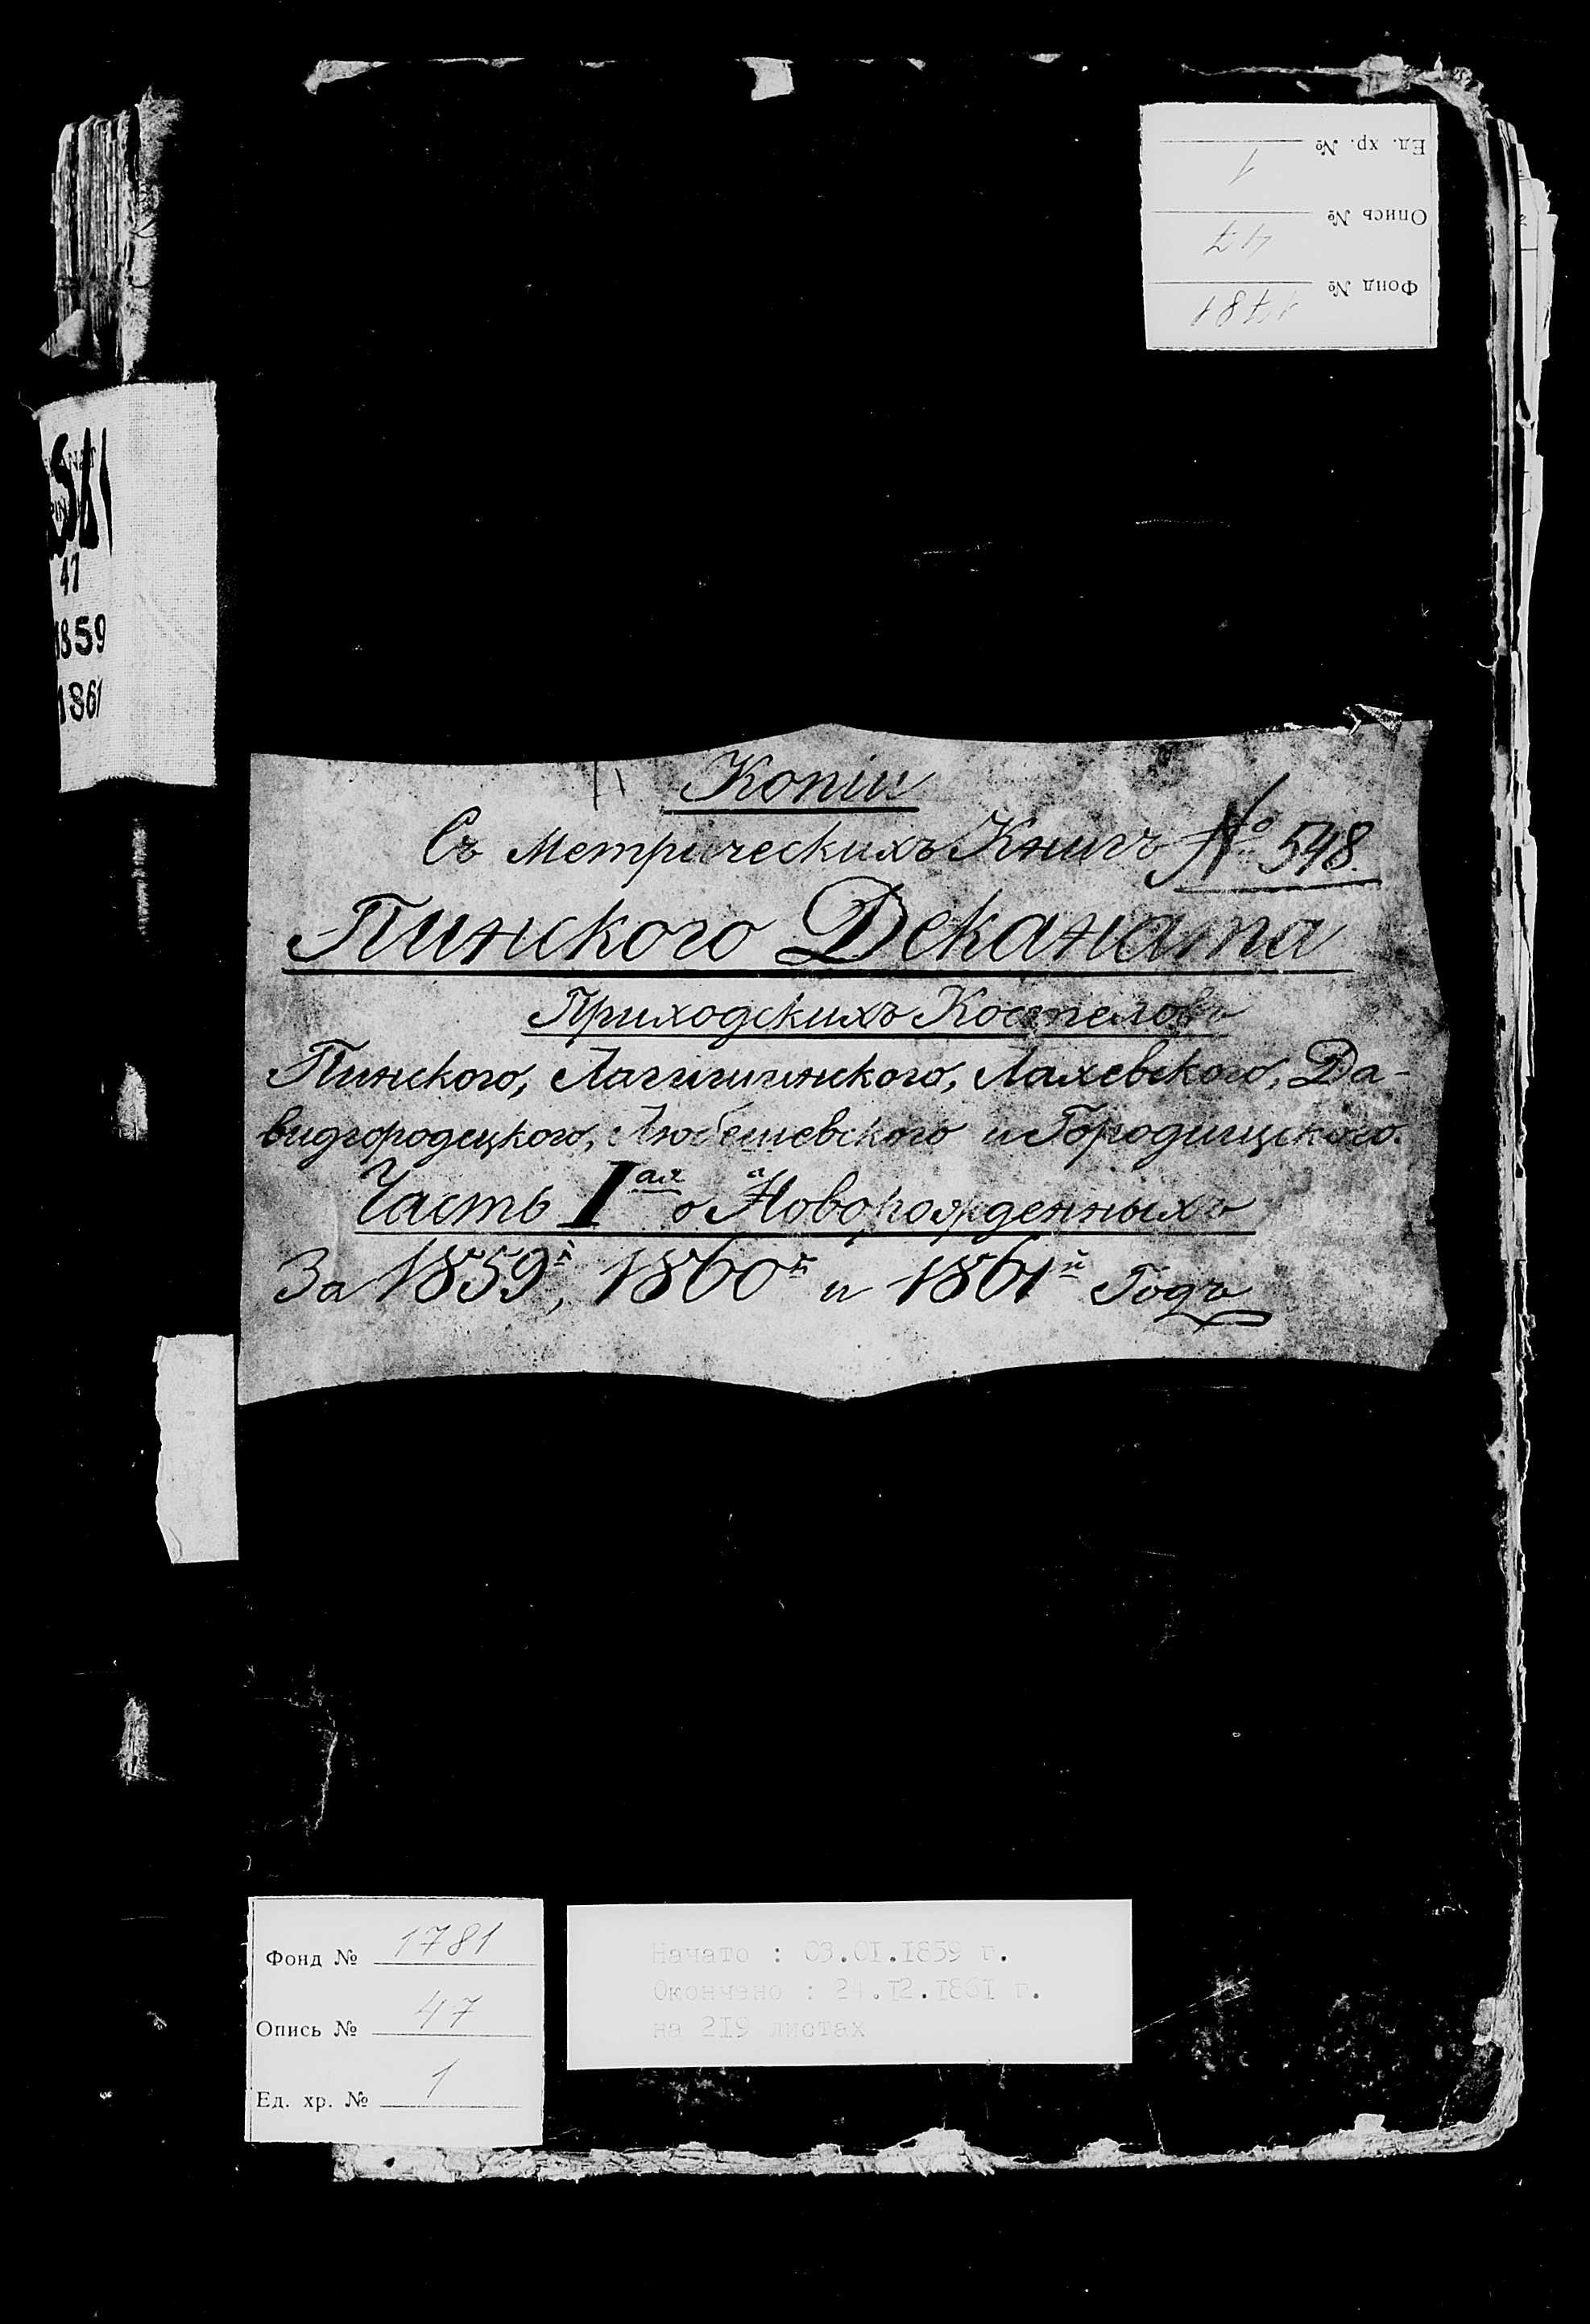 Ед. хр. № 1
Опись № 47
Фонд № 1781
47
1859
1861
Копіи
Съ Метрическихъ Книгъ № 548.
Пинского Деканата
Приходскихъ Костеловъ
Пинского, Лагишинского, Лахевского, Да-
видгородецкого, Любешевского и Городищского.
Часть Iая о Новорожденныхъ
За 1859й, 1860й и 1861й Годъ
Фонд № 1781
Опись № 47
Ед. хр. № 1
Начато : 03.01.1859 г.
Окончено : 24.12.1861 г.
на 219 листах